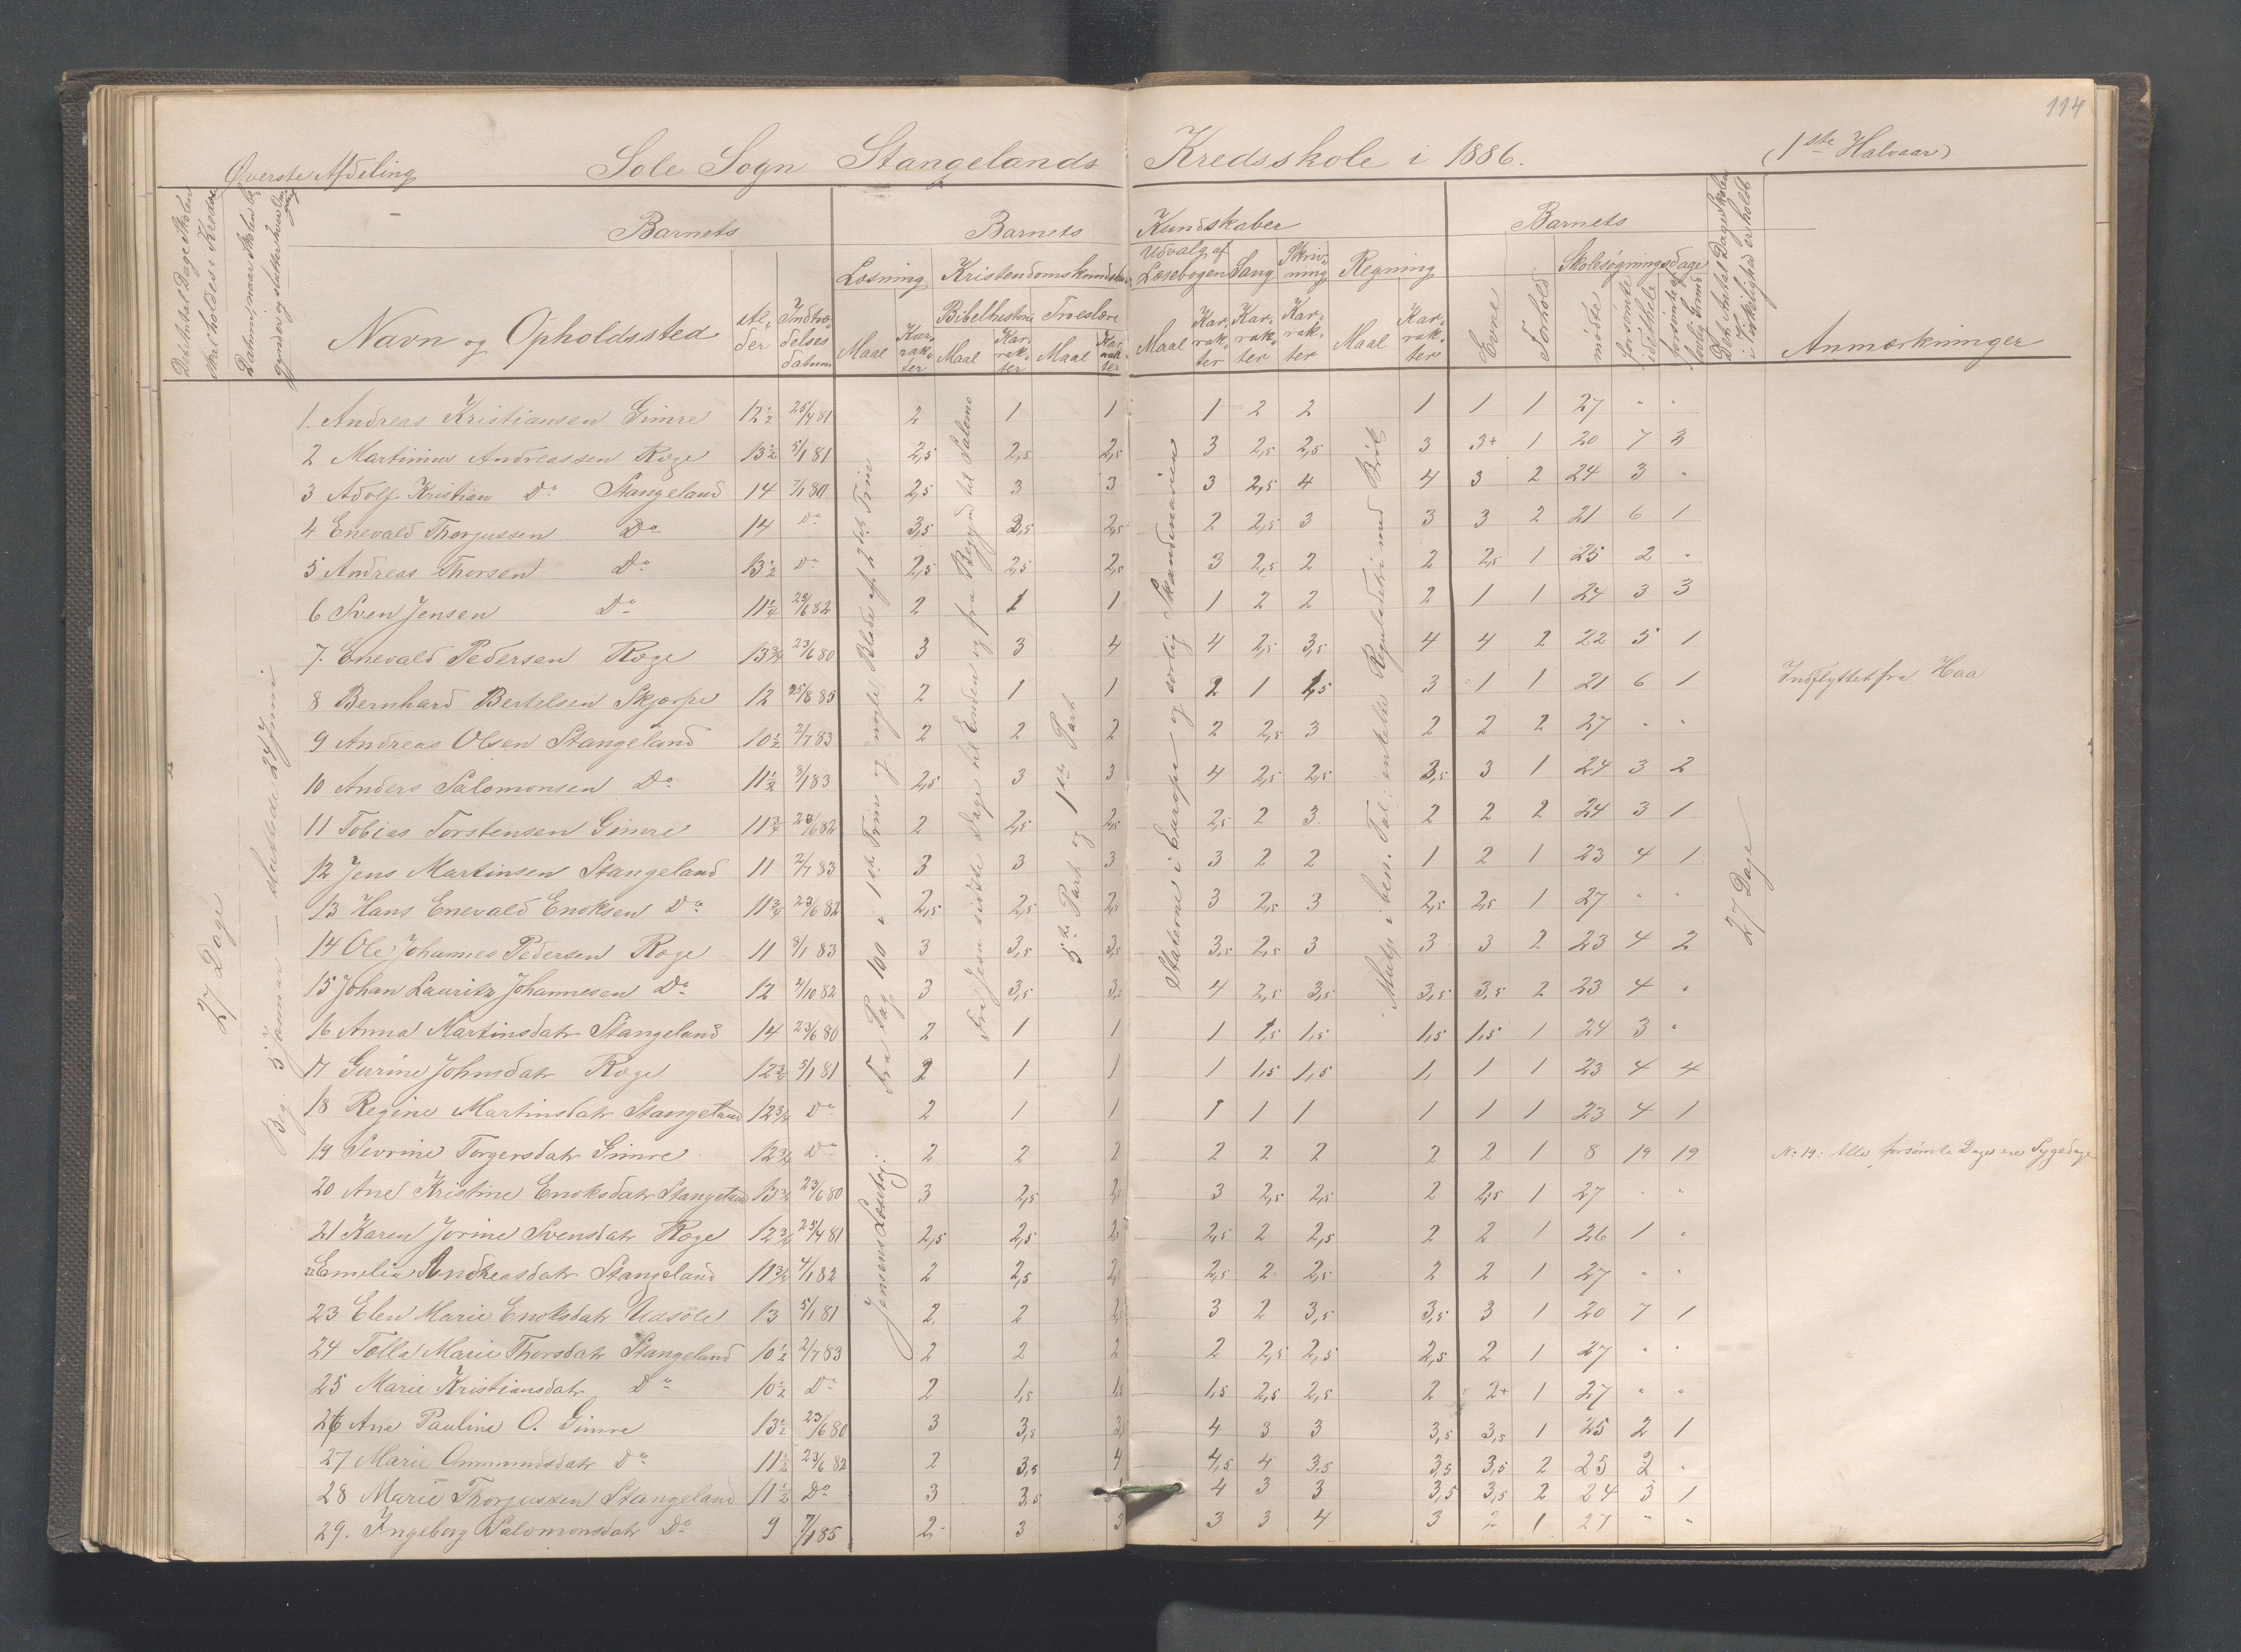 114
Øverste Afdeling Sole Sogn Stangelands Kredsskole i 1886. (1ste Halvaar)
Det Antal Dage Skolen skal holdes i Kredsen
Datum, naar Skolen begynder og slutter hver Omgang
Barnets
Navn og Opholdssted
Alder
Indtrædelsesdatum
Barnets Kundskaber
Læsning
Maal
Karakter
Kristendomskundskab
Bibelhistorie
Maal
Karakter
Troeslære
Maal
Karakter
Udvalg af Læsebogen
Maal
Karakter
Sang
Karakter
Skrivning
Karakter
Regning
Maal
Karakter
Barnets
Evne
Forhold
Skolesøgningsdage
mødte
forsømte i det Hele
forsømte af lovlig Grund
Det Antal Dage Skolen i Virkelighed er holdt
Anmærkninger
27 Dage
Beg. 5 Januar — sluttede 24 Juni
Jensens Læsebog: Fra Pag 100 i 1ste Trin og nogle Blade af 2det Trin
Fra Jesu sidste Dage til Enden og fra Begynd til Salomo
5te Part og 1ste Part
Staterne i Europa og særlig Skandinavien
Multp i ben. Tal; enkelte Reguladetri med Brök
27 Dage
1. Andreas Kristiansen Gimre 12½ 25/4 81 2 1 1 1 2 2 1 1 1 27 " "
2 Martinius Andreassen Røge 13½ 5/1 81 2,5 2,5 2,5 3 2,5 2,5 3 3+ 1 20 7 3
3 Adolf Kristian Do Stangeland 14 7/1 80 2,5 3 3 3 2,5 4 4 3 2 24 3 "
4 Enevald Thorjussen Do 14 Do 3,5 2,5 2,5 2 2,5 3 3 3 2 21 6 1
5 Andreas Thorsen Do 13½ Do 2,5 2,5 2,5 3 2,5 2 2 2,5 1 25 2 "
6 Sven Jensen Do 11½ 23/6 82 2 1 1 1 2 2 2 1 1 24 3 3
7. Enevald Pedersen Røge 13¾ 23/6 80 3 3 4 4 2,5 3,5 4 4 2 22 5 1
8 Bernhard Bertelsen Skjørpe 12 25/8 85 2 1 1 2 1 1,5 3 1 1 21 6 1 Indflyttet fra Haa
9 Andreas Olsen Stangeland 10½ 2/7 83 2 2 2 2 2,5 3 2 2 2 27 " "
10 Anders Salomonsen Do 11½ 8/1 83 2,5 3 3 4 2,5 2,5 3,5 3 1 24 3 2
11 Tobias Torstensen Gimre 11¾ 23/6 82 2 2,5 2,5 2,5 2 3 2 2 2 24 3 1
12 Jens Martinsen Stangeland 11 2/7 83 3 3 3 3 2 2 1 2 1 23 4 1
13 Hans Enevald Enoksen Do 11¾ 23/6 82 2,5 2,5 2,5 3 2,5 3 2,5 2,5 1 27 " "
14 Ole Johannes Pedersen Røge 11 8/1 83 3 3,5 3,5 3,5 2,5 3 3 3 2 23 4 2
15 Johan Lauritz Johannesen Do 12 2/10 82 3 3,5 3,5 4 2,5 3,5 3,5 3,5 2 23 4 "
16 Anna Martinsdatr Stangeland 14 23/6 80 2 1 1 1 1,5 1,5 1,5 1,5 1 24 3 "
17 Gurine Johnsdatr Røge 12¾ 5/1 81 2 1 1 1 1,5 1,5 1, 1 1 23 4 4
18 Regine Martinsdatr Stangeland 12¾ Do 2 1 1 1 1 1 1 1 1 23 4 1
19 Sevrine Torgersdatr Gimre 12¾ Do 2 2 2 2 2 2 2 2 1 8 19 19 No 19: Alle forsømte Dage ere Sygedage
20 Ane Kristine Enoksdatr Stangeland 13¾ 23/6 80 3 2,5 2,5 3 2,5 2,5 2 2,5 1 27 " "
21 Karen Jorine Svensdatr Røge 12¾ 25/4 81 2,5 2,5 2,5 2,5 2 2,5 2 2 1 26 1 "
22 Emelia Andreasdatr Stangeland 11¾ 4/1 82 2 2,5 2,5 2,5 2 2,5 2 2 1 27 " "
23 Elen Marie Enoksdatr Udsole 13 5/1 81 2 2 2,5 3 2 3,5 3,5 3 1 20 7 1
24 Tolla Marie Thorsdatr Stangeland 10½ 2/7 83 2 2 2 2 2,5 2,5 2,5 2 1 27 " "
25 Marie Kristiansdatr Do 10½ Do 2 1,5 1,5 1,5 2,5 2,5 2 2+ 1 27 " "
26 Ane Pauline O. Gimre 13½ 23/6 80 3 3,5 3,5 4 3 3 3,5 3,5 1 25 2 1
27 Marie Ommundsdatr Do 11½ 23/6 82 2 3,5 4 4,5 4 3,5 3,5 3,5 2 25 2 "
28 Marie Thorjussen Stangeland 11½ Do 3 3,5 4 3 3 3,5 3,5 2 24 3 1
29. Ingeborg Salomonsdatr Do 9 7/1 85 2 3 3 3 3 4 3 2 1 27 " "